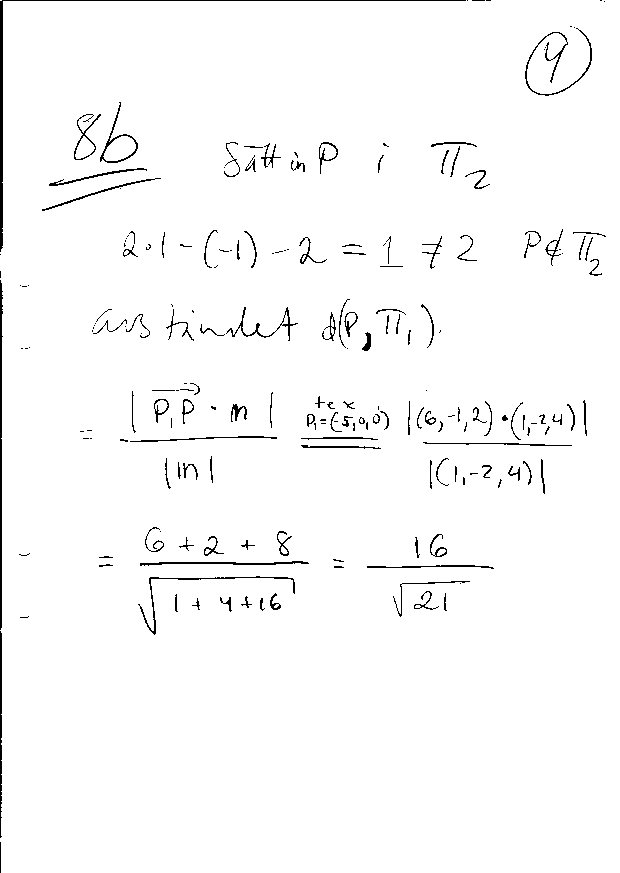 4
8b Sätt in P i Π₂
2·1-(-1)-2 = 1 ≠ 2 P∉Π₂
avståndet d(P, Π₁).
= |P₁P · n| / |n| = tex P₁=(-5,0,0) |(6,-1,2)·(1,-2,4)| / |(1,-2,4)|
= 6+2+8 / √1+4+16 = 16 / √21